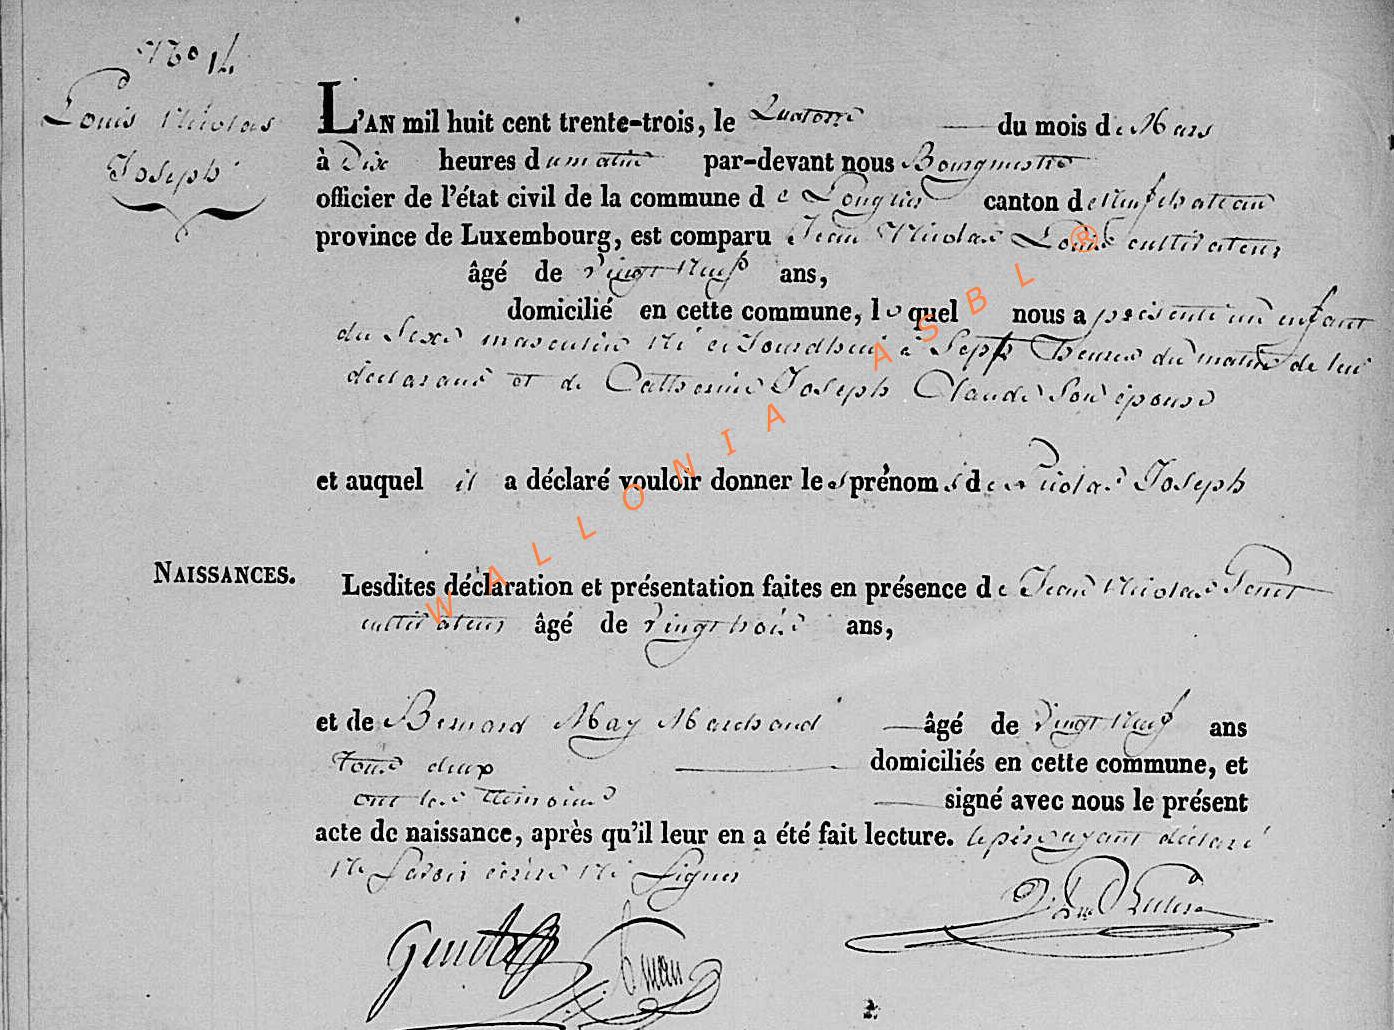 No 14
Louis Nicolas
Joseph
L'AN mil huit cent trente-trois, le Quatorze du mois de Mars
à Dix heures du matin par-devant nous Bourgmestre
officier de l'état civil de la commune de Longlier canton de Neufchateau
province de Luxembourg, est comparu Jean Nicolas Louis cultivateur
âgé de vingt neuf ans,
domicilié en cette commune, lequel nous a présenté un enfant
du Sexe masculin né ce Jourdhui à Sept heures du matin de lui
déclarant et de Catherine Joseph Claude Son épouse
et auquel il a déclaré vouloir donner les prénoms de Nicolas Joseph
NAISSANCES.
Lesdites déclaration et présentation faites en présence de Jean Nicolas
cultivateur âgé de vingt trois ans,
et de Bernard May Marchand âgé de vingt neuf ans
tous deux domiciliés en cette commune, et
ont les témoins signé avec nous le présent
acte de naissance, après qu'il leur en a été fait lecture. le père ayant déclaré
ne Savoir écrire ni Signer
WALLONIA ASBL ®